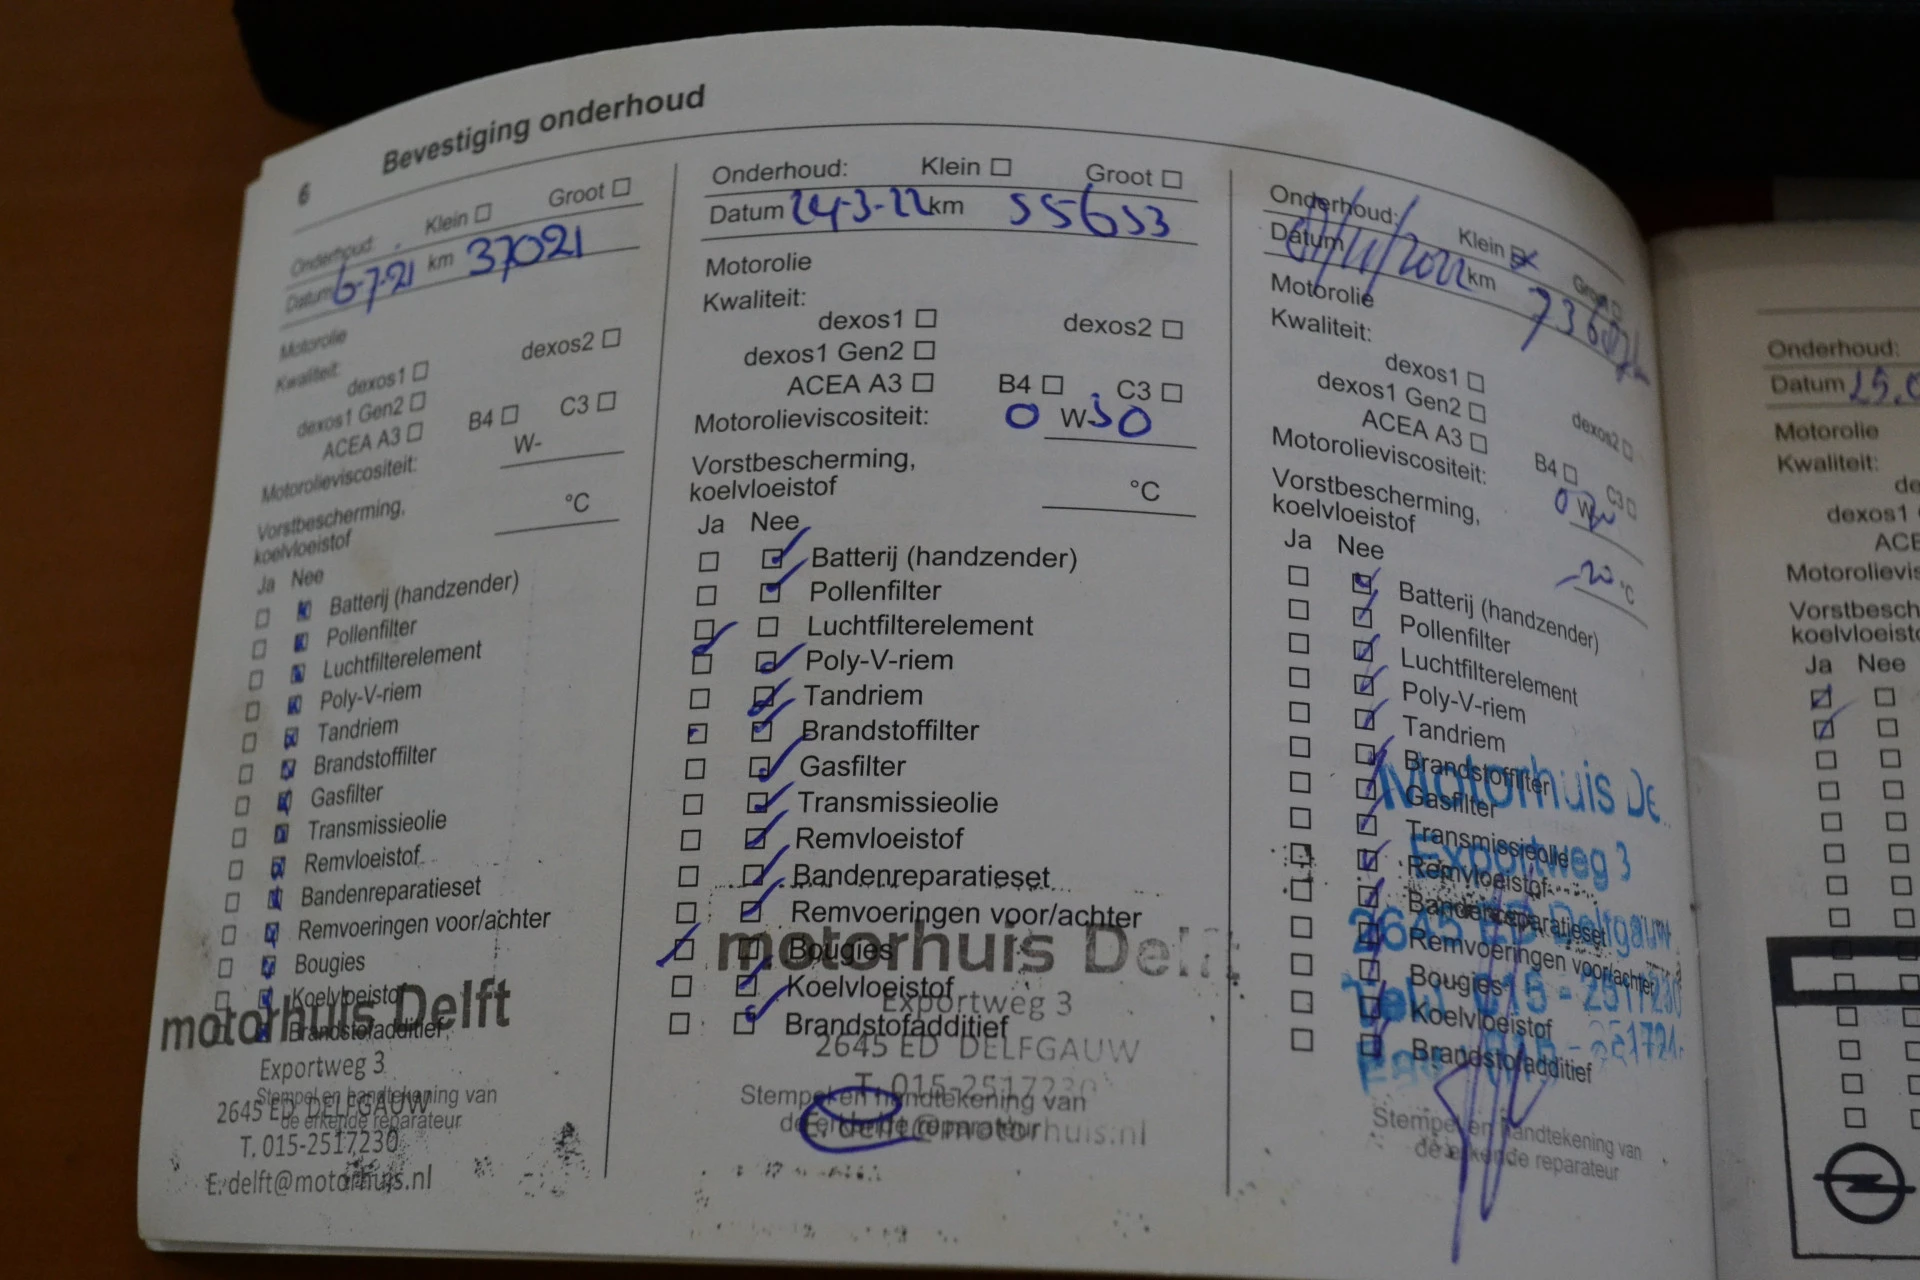 6 Bevestiging onderhoud
Onderhoud: Klein ☐ Groot ☐
Datum 6-7-21 km 37021
Motorolie
Kwaliteit:
dexos1 ☐ dexos2 ☐
dexos1 Gen2 ☐
ACEA A3 ☐ B4 ☐ C3 ☐
Motorolieviscositeit: W-
Vorstbescherming,
koelvloeistof °C
Ja Nee
Batterij (handzender)
Pollenfilter
Luchtfilterelement
Poly-V-riem
Tandriem
Brandstoffilter
Gasfilter
Transmissieolie
Remvloeistof
Bandenreparatieset
Remvoeringen voor/achter
Bougies
Koelvloeistof
Brandstofadditief
motorhuis Delft
Exportweg 3
2645 ED DELFGAUW
T. 015-2517230
E. delft@motorhuis.nl
Stempel en handtekening van
de erkende reparateur
Onderhoud: Klein ☐ Groot ☐
Datum 24-3-22 km 55653
Motorolie
Kwaliteit:
dexos1 ☐ dexos2 ☐
dexos1 Gen2 ☐
ACEA A3 ☐ B4 ☐ C3 ☐
Motorolieviscositeit: 0 W-30
Vorstbescherming,
koelvloeistof °C
Ja Nee
Batterij (handzender)
Pollenfilter
Luchtfilterelement
Poly-V-riem
Tandriem
Brandstoffilter
Gasfilter
Transmissieolie
Remvloeistof
Bandenreparatieset
Remvoeringen voor/achter
Bougies
Koelvloeistof
Brandstofadditief
motorhuis Delft
Exportweg 3
2645 ED DELFGAUW
T. 015-2517230
E. delft@motorhuis.nl
Stempel en handtekening van
de erkende reparateur
Onderhoud: Klein ☒ Groot ☐
Datum km
Motorolie
Kwaliteit:
dexos1 ☐ dexos2 ☐
dexos1 Gen2 ☐
ACEA A3 ☐ B4 ☐ C3 ☐
Motorolieviscositeit: 0 W
Vorstbescherming,
koelvloeistof -20 °C
Ja Nee
Batterij (handzender)
Pollenfilter
Luchtfilterelement
Poly-V-riem
Tandriem
Brandstoffilter
Gasfilter
Transmissieolie
Remvloeistof
Bandenreparatieset
Remvoeringen voor/achter
Bougies
Koelvloeistof
Brandstofadditief
Motorhuis De
Exportweg 3
2645 ED Delfgauw
Tel. 015 - 2517230
Stempel en handtekening van
de erkende reparateur
Onderhoud:
Datum
Motorolie
Kwaliteit:
de
dexos1
ACE
Motorolievis
Vorstbesch
koelvloeisto
Ja Nee